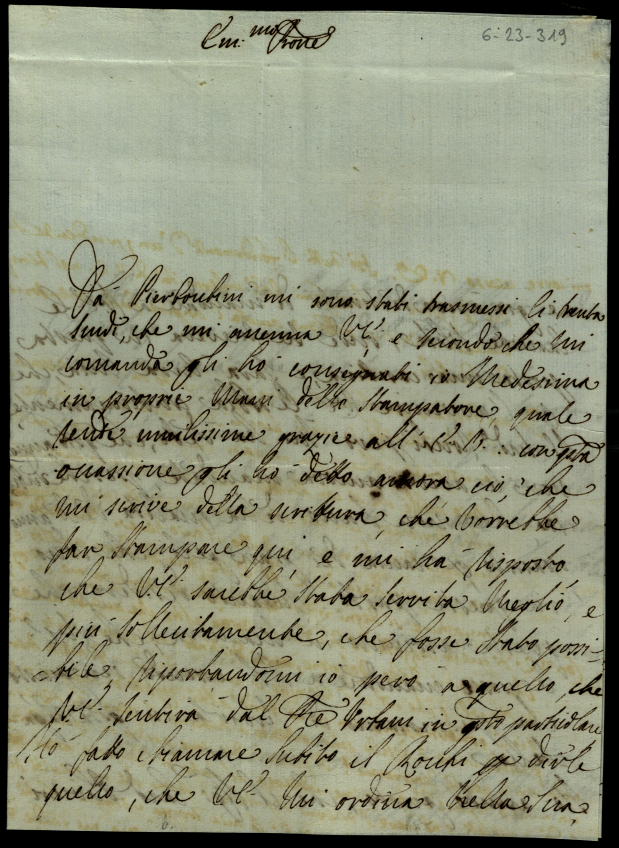 6-23-319
Em.mo Prone
Da Pierbenbini mi sono stati trasmessi li trenta
scudi, che mi accenna V.E. e secondo che mi
comanda gli hò consegnati io Medesima
in proprie Mani dello Stampatore, quale
rende umilissime grazie all' con qta
occassione gli hò detto ancora ciò, che
mi scrive della scrittura, che vorrebbe
far Stampare qui, e mi hà risposto,
che V.E. sarebbe stata servita Meglio, e
più sollecitamente, che fosse stato possi-
bile, riportandomi io però a quello, che
V.E. sentirà dal Urbani in qto particolare
Hò fatto chiamare subito il Rochi p dirle
quello, che V.E. Mi ordina Nella Sua,